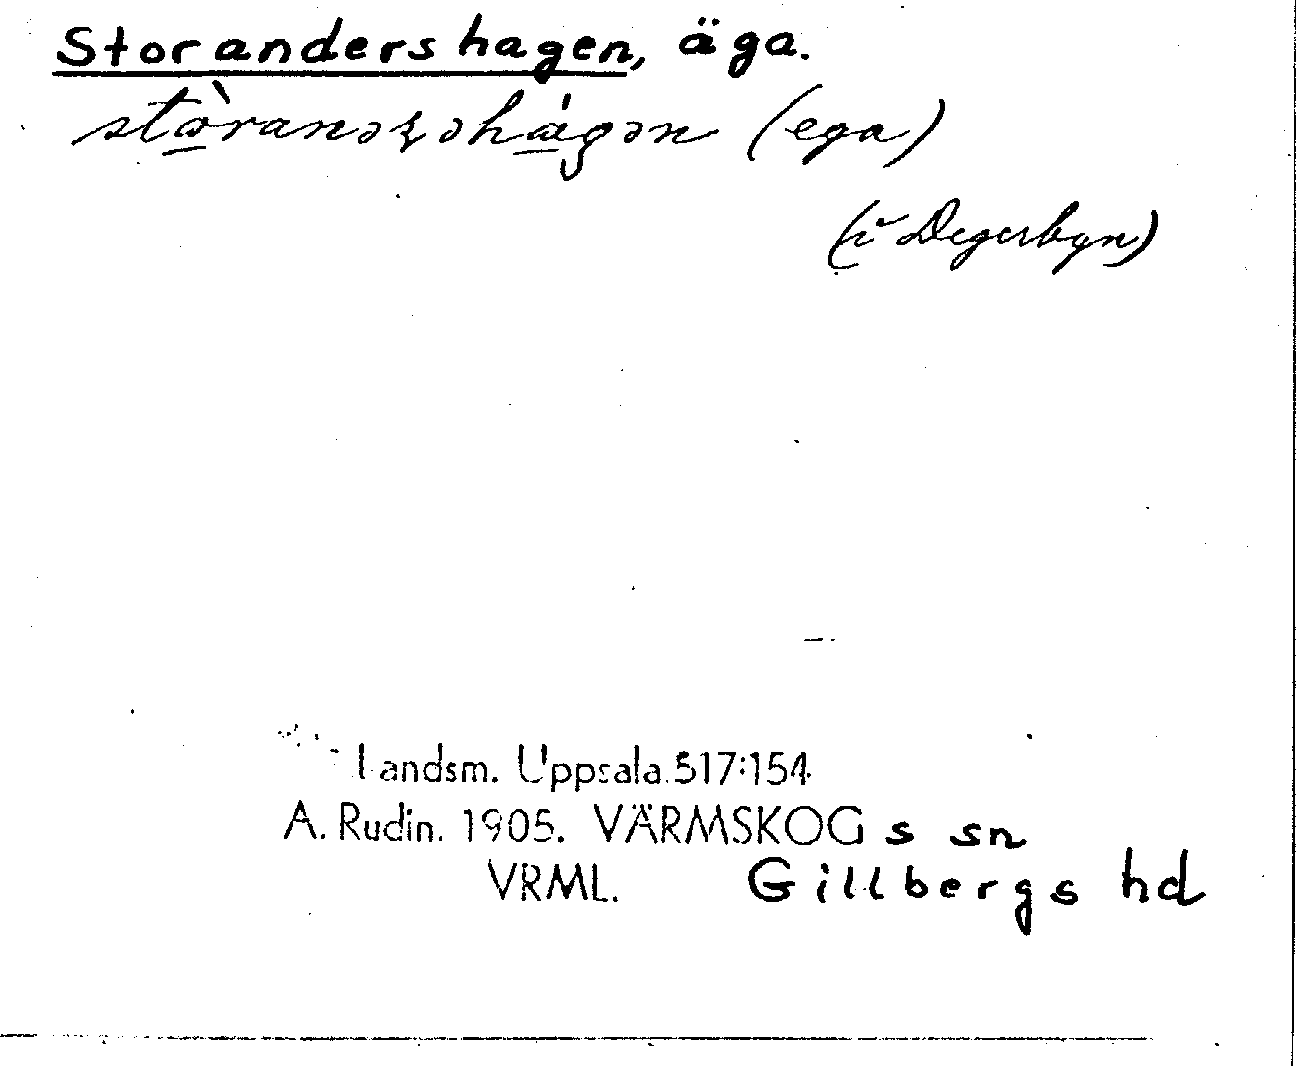 Storandershagen, äga.
(ega)
(i Degerbyn)
Landsm. Uppsala 517:154
A. Rudin. 1905. VÄRMSKOGs sn
VRML. Gillbergs hd